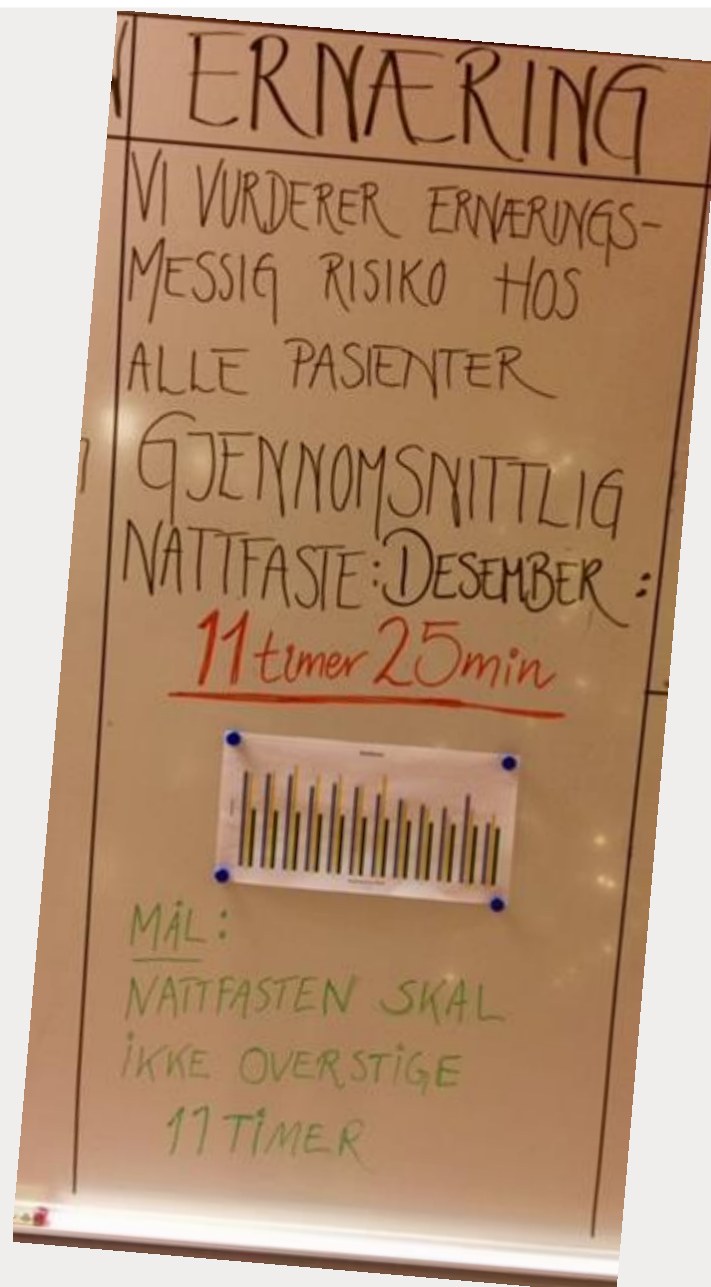 ERNÆRING
VI VURDERER ERNÆRINGS-
MESSIG RISIKO HOS
ALLE PASIENTER
GJENNOMSNITTLIG
NATTFASTE: DESEMBER :
11 timer 25 min
MÅL:
NATTFASTEN SKAL
IKKE OVERSTIGE
11 TIMER